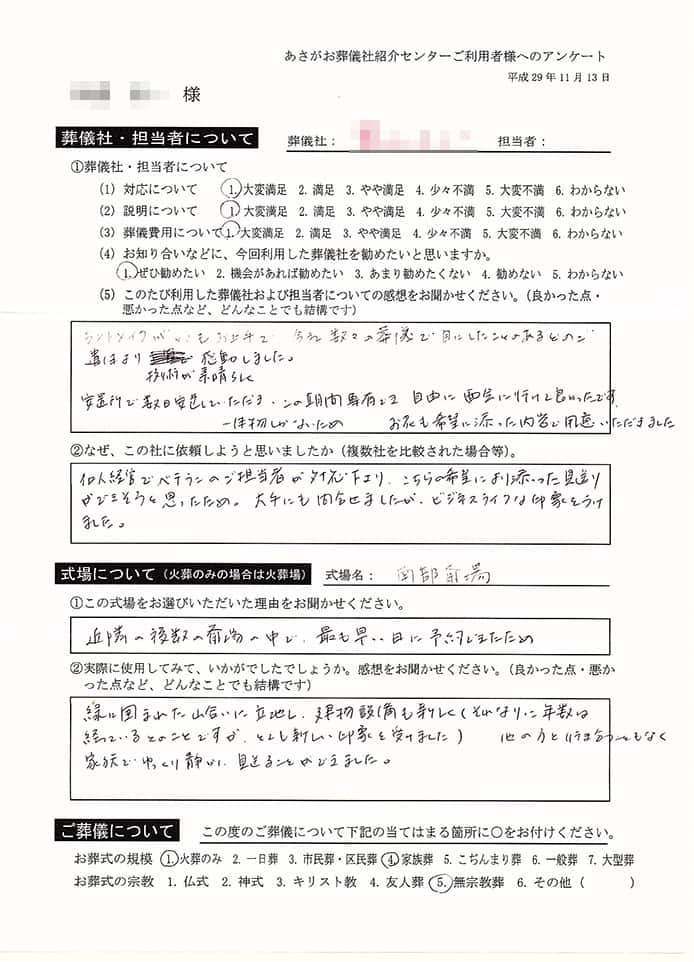 あさがお葬儀社紹介センターご利用者様へのアンケート
平成 29 年 11 月 13 日
様
葬儀社・担当者について 葬儀社： 担当者：
①葬儀社・担当者について
(1) 対応について 1. 大変満足 2. 満足 3. やや満足 4. 少々不満 5. 大変不満 6. わからない
(2) 説明について 1. 大変満足 2. 満足 3. やや満足 4. 少々不満 5. 大変不満 6. わからない
(3) 葬儀費用について 1. 大変満足 2. 満足 3. やや満足 4. 少々不満 5. 大変不満 6. わからない
(4) お知り合いなどに、今回利用した葬儀社を勧めたいと思いますか。
1. ぜひ勧めたい 2. 機会があれば勧めたい 3. あまり勧めたくない 4. 勧めない 5. わからない
(5) このたび利用した葬儀社および担当者についての感想をお聞かせください。（良かった点・
悪かった点など、どんなことでも結構です）
もお上手で 数々の葬儀で目にしたことのあるどのご
遺体より 感動しました。
技術が素晴らしく
安置所で数日安置していただき、この期間専有でき 自由に面会に行けて良かったです。
お花も希望に添った内容で用意いただきました
②なぜ、この社に依頼しようと思いましたか（複数社を比較された場合等）。
個人経営でベテランのご担当者が対応下さり、こちらの希望により添った見送り
ができそうと思ったため。大手にも問合せましたが、ビジネスライクな印象をうけ
ました。
式場について（火葬のみの場合は火葬場） 式場名： 南部斎場
①この式場をお選びいただいた理由をお聞かせください。
近隣の複数の斎場の中で、最も早い日に予約できたため
②実際に使用してみて、いかがでしたでしょうか。感想をお聞かせください。（良かった点・悪か
った点など、どんなことでも結構です）
緑に囲まれた山合いに立地し、建物設備も新しく（それなりに年数は
経っているとのことですが、とても新しい印象を受けました） 他の方と行き合うこともなく
家族でゆっくり静かに見送ることができました。
ご葬儀について この度のご葬儀について下記の当てはまる箇所に○をお付けください。
お葬式の規模 1. 火葬のみ 2. 一日葬 3. 市民葬・区民葬 4. 家族葬 5. こぢんまり葬 6. 一般葬 7. 大型葬
お葬式の宗教 1. 仏式 2. 神式 3. キリスト教 4. 友人葬 5. 無宗教葬 6. その他（ ）